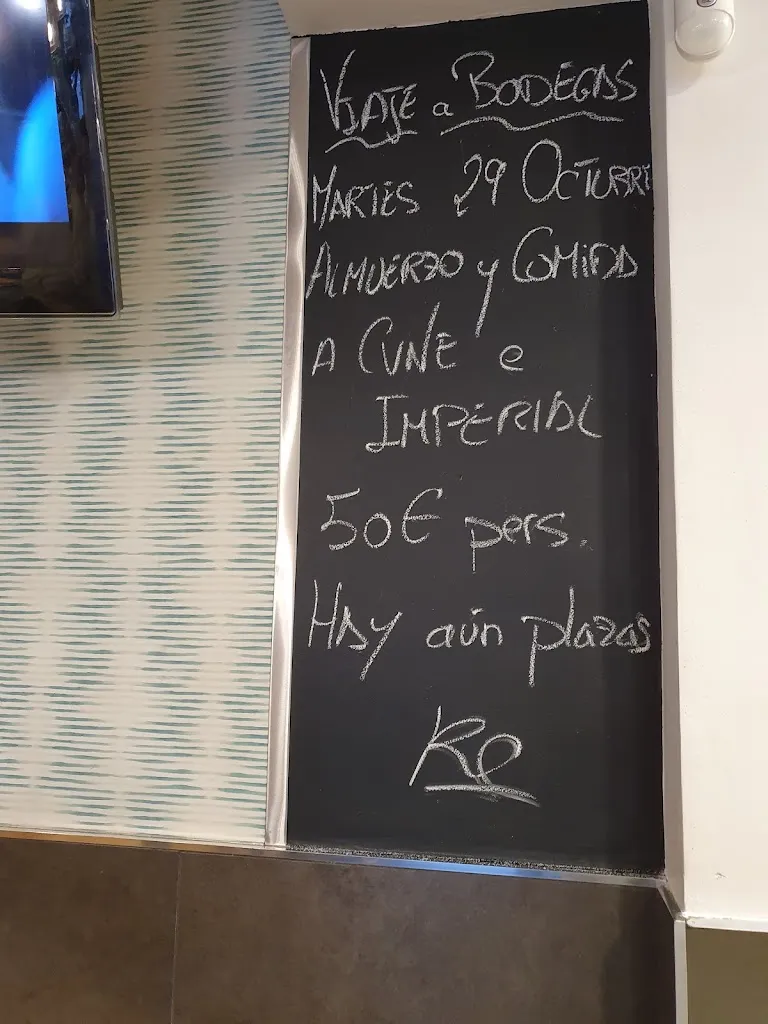 VIAJE a BODEGAS
MARTES 29 OCTUBRE
ALMUERZO y COMIDA
A CUNE e
IMPERIAL
50€ pers.
HAY aún plazas